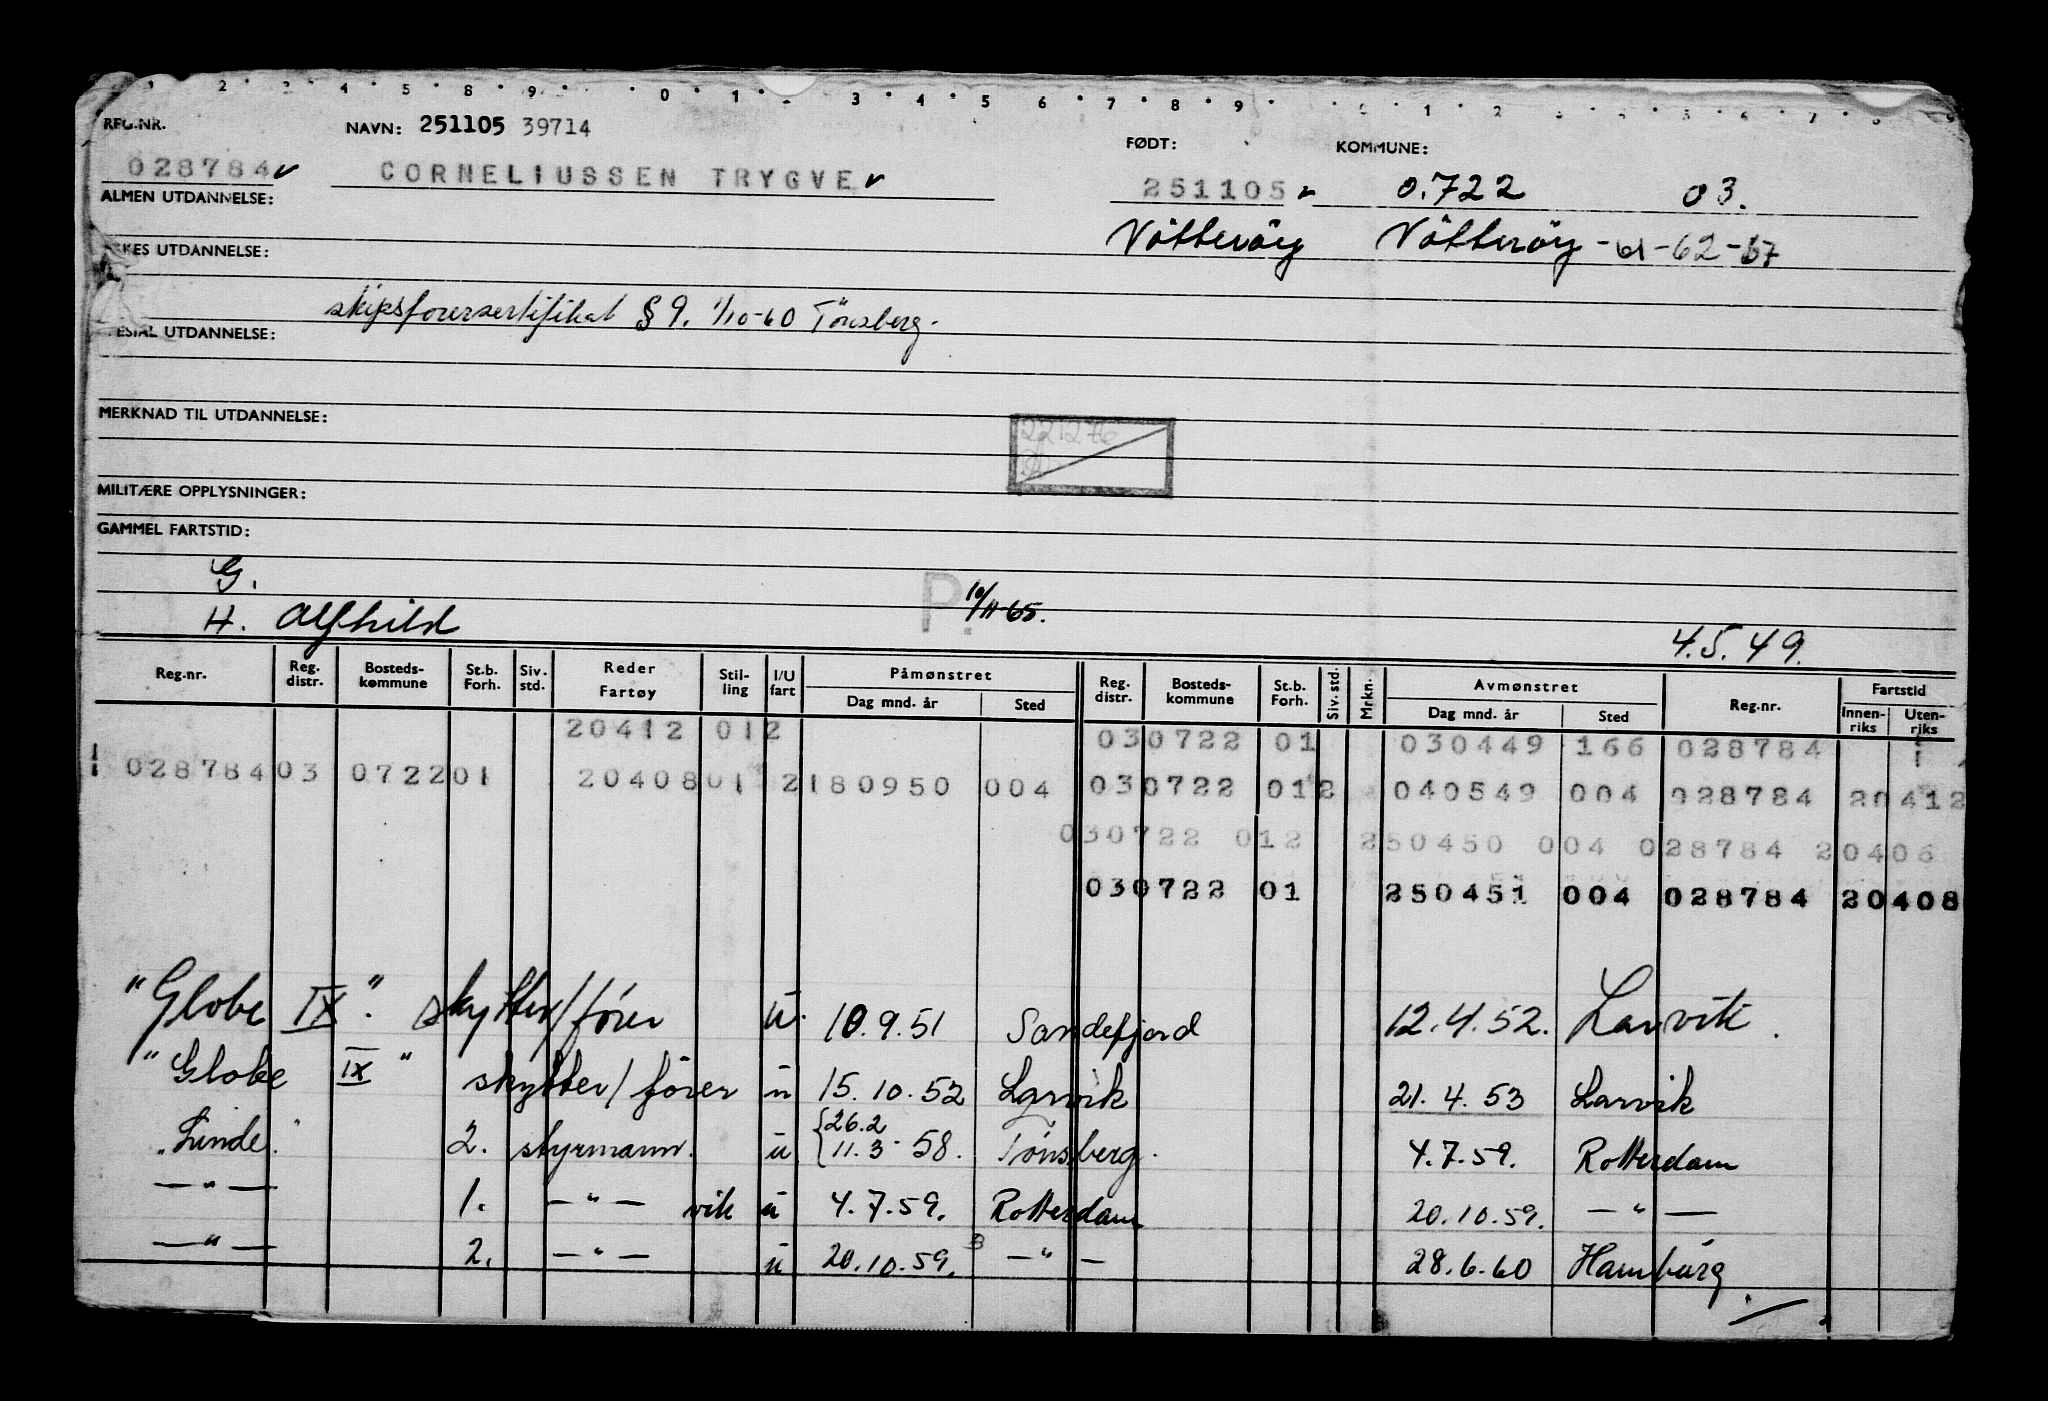 REG.NR. NAVN: 251105 39714 FØDT: KOMMUNE:
028784 CORNELIUSSEN TRYGVE 251105 0.722 03.
ALMEN UTDANNELSE:
Nötteröy Nötteröy -61-62-67
UTDANNELSE:
skipsförersertifikat § 9. 1/10-60 Tönsberg.
UTDANNELSE:
MERKNAD TIL UTDANNELSE:
221276
MILITÆRE OPPLYSNINGER:
GAMMEL FARTSTID:
G.
H. Alfhild P. 10/11-65. 4.5.49.
Reg.nr. Reg. distr. Bosteds-kommune St.b. Forh. Siv. std. Reder Fartøy Stil-ling I/U fart Påmønstret Dag mnd. år Sted Reg. distr. Bosteds-kommune St.b. Forh. Siv. std. Mrkn. Avmønstret Dag mnd. år Sted Reg.nr. Fartstid Innen-riks Uten-riks
20412 012 030722 01 030449 166 028784
028784 03 0722 01 20408 01 2 180950 004 030722 012 040549 004 028784 20412
030722 012 250450 004 028784 20406
030722 01 250451 004 028784 20408
"Globe IX". skytter/fører u. 10.9.51 Sandefjord 12.4.52. Larvik.
"Globe IX" skytter/fører u 15.10.52 Larvik 21.4.53 Larvik
"Linde" 2. styrmann. u {26.2 11.3-58. Tønsberg. 4.7.59. Rotterdam
—"— 1. —"— vik u 4.7.59. Rotterdam 20.10.59. —"—
—"— 2. —"— u 20.10.59. —"— 28.6.60 Hamburg